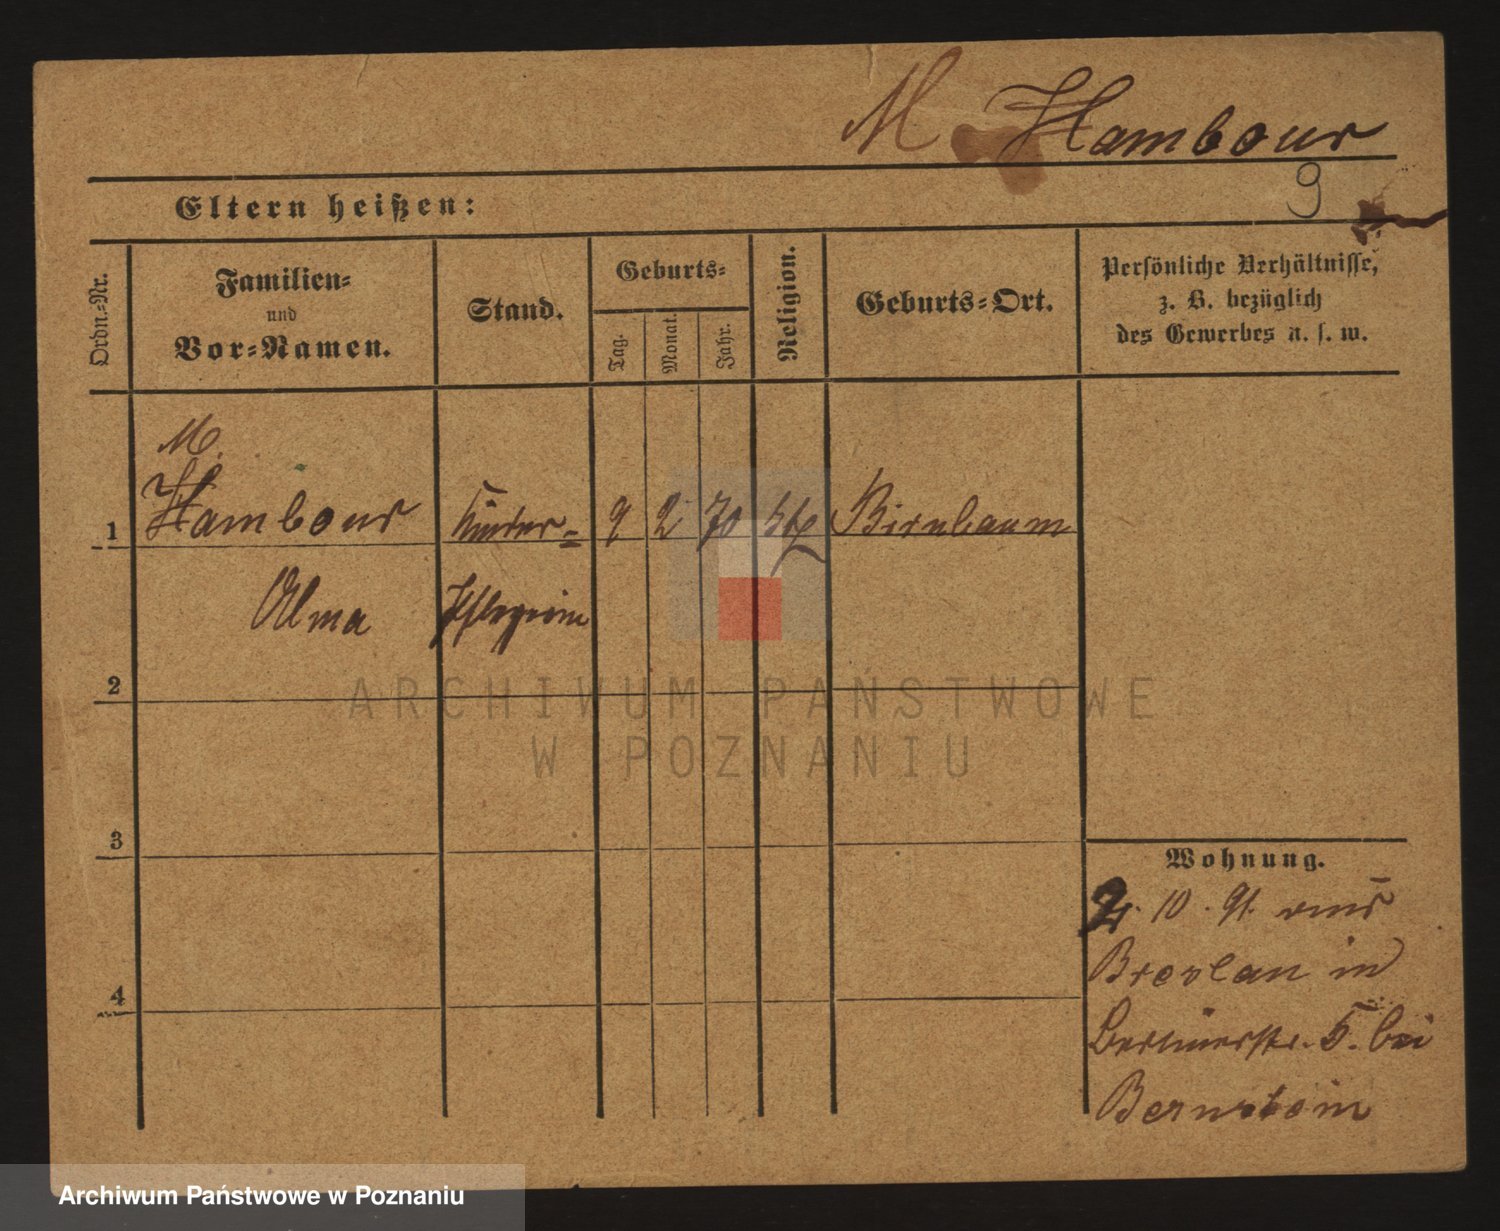 M Hambour
9
Eltern heißen:
Ordn.-Nr.
Familien-
und
Vor-Namen.
Stand.
Geburts-
Tag.
Monat.
Jahr.
Religion.
Geburts-Ort.
Persönliche Verhältnisse,
z. B. bezüglich
des Gewerbes u. s. w.
M.
1 Hambour Kinder- 9 2 70 Birnbaum
Alma Pflegerin
2
3
4
Wohnung.
2. 10. 91. aus
Breslau in
Berlinerstr. 5. bei
Bernstein
ARCHIWUM PAŃSTWOWE
W POZNANIU
Archiwum Państwowe w Poznaniu